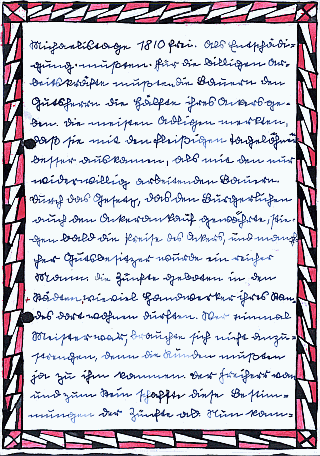 Michaelistage 1810 frei. Als Entschädi-
gung mußten für die billigen Ar-
beitskräfte mußten die Bauern den
Gutsherrn die Hälfte ihres Ackers ge-
ben. Die meisten Adligen merkten,
daß sie mit den fleißigen Tagelöhnern
besser auskamen, als mit den nur
widerwillig arbeitenden Bauern.
Durch das Gesetz, das den Bürgerlichen
auch den Ackerankauf gewährte, stie-
gen bald die Preise des Ackers, und manch-
cher Gutsbesitzer wurde ein reicher
Mann die Zünfte geboten in den
Städten, wieviel Handwerker ihres Stan-
des dort wohnen durften. Wer einmal
Meister war, brauchte sich nicht anzu-
strengen, denn die Kunden mußten
ja zu ihm kommen der Freiherr von
und zum Stein schaffte diese Bestim-
mungen der Zünfte ab. Nun kam-